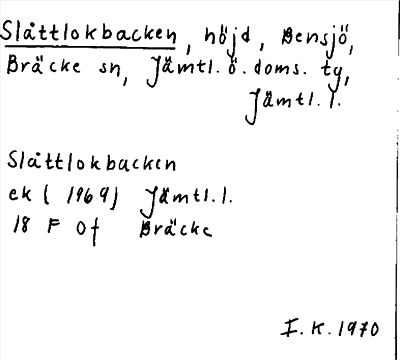 Slåttlokbacken, höjd, Bensjö,
Bräcke sn, Jämtl. ö. doms. tg,
Jämtl. l.
Slåttlokbacken
ek (1969) Jämtl. l.
18 F 0f Bräcke
I. K. 1970